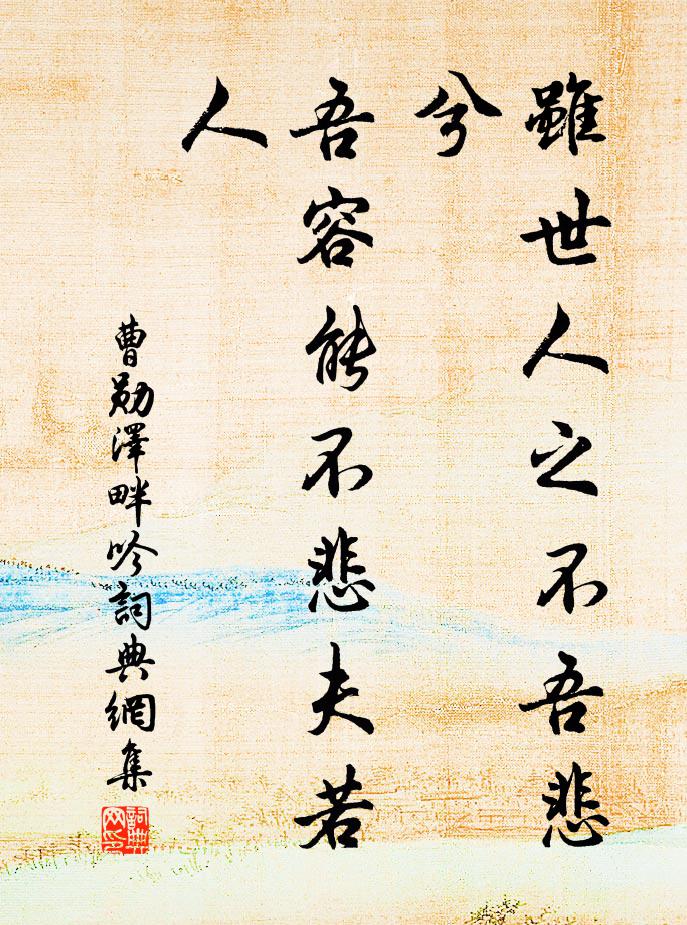 雖世人之不吾悲
兮
吾容能不悲夫若
人
曹勛澤畔吟詞典網集
詞典
网印